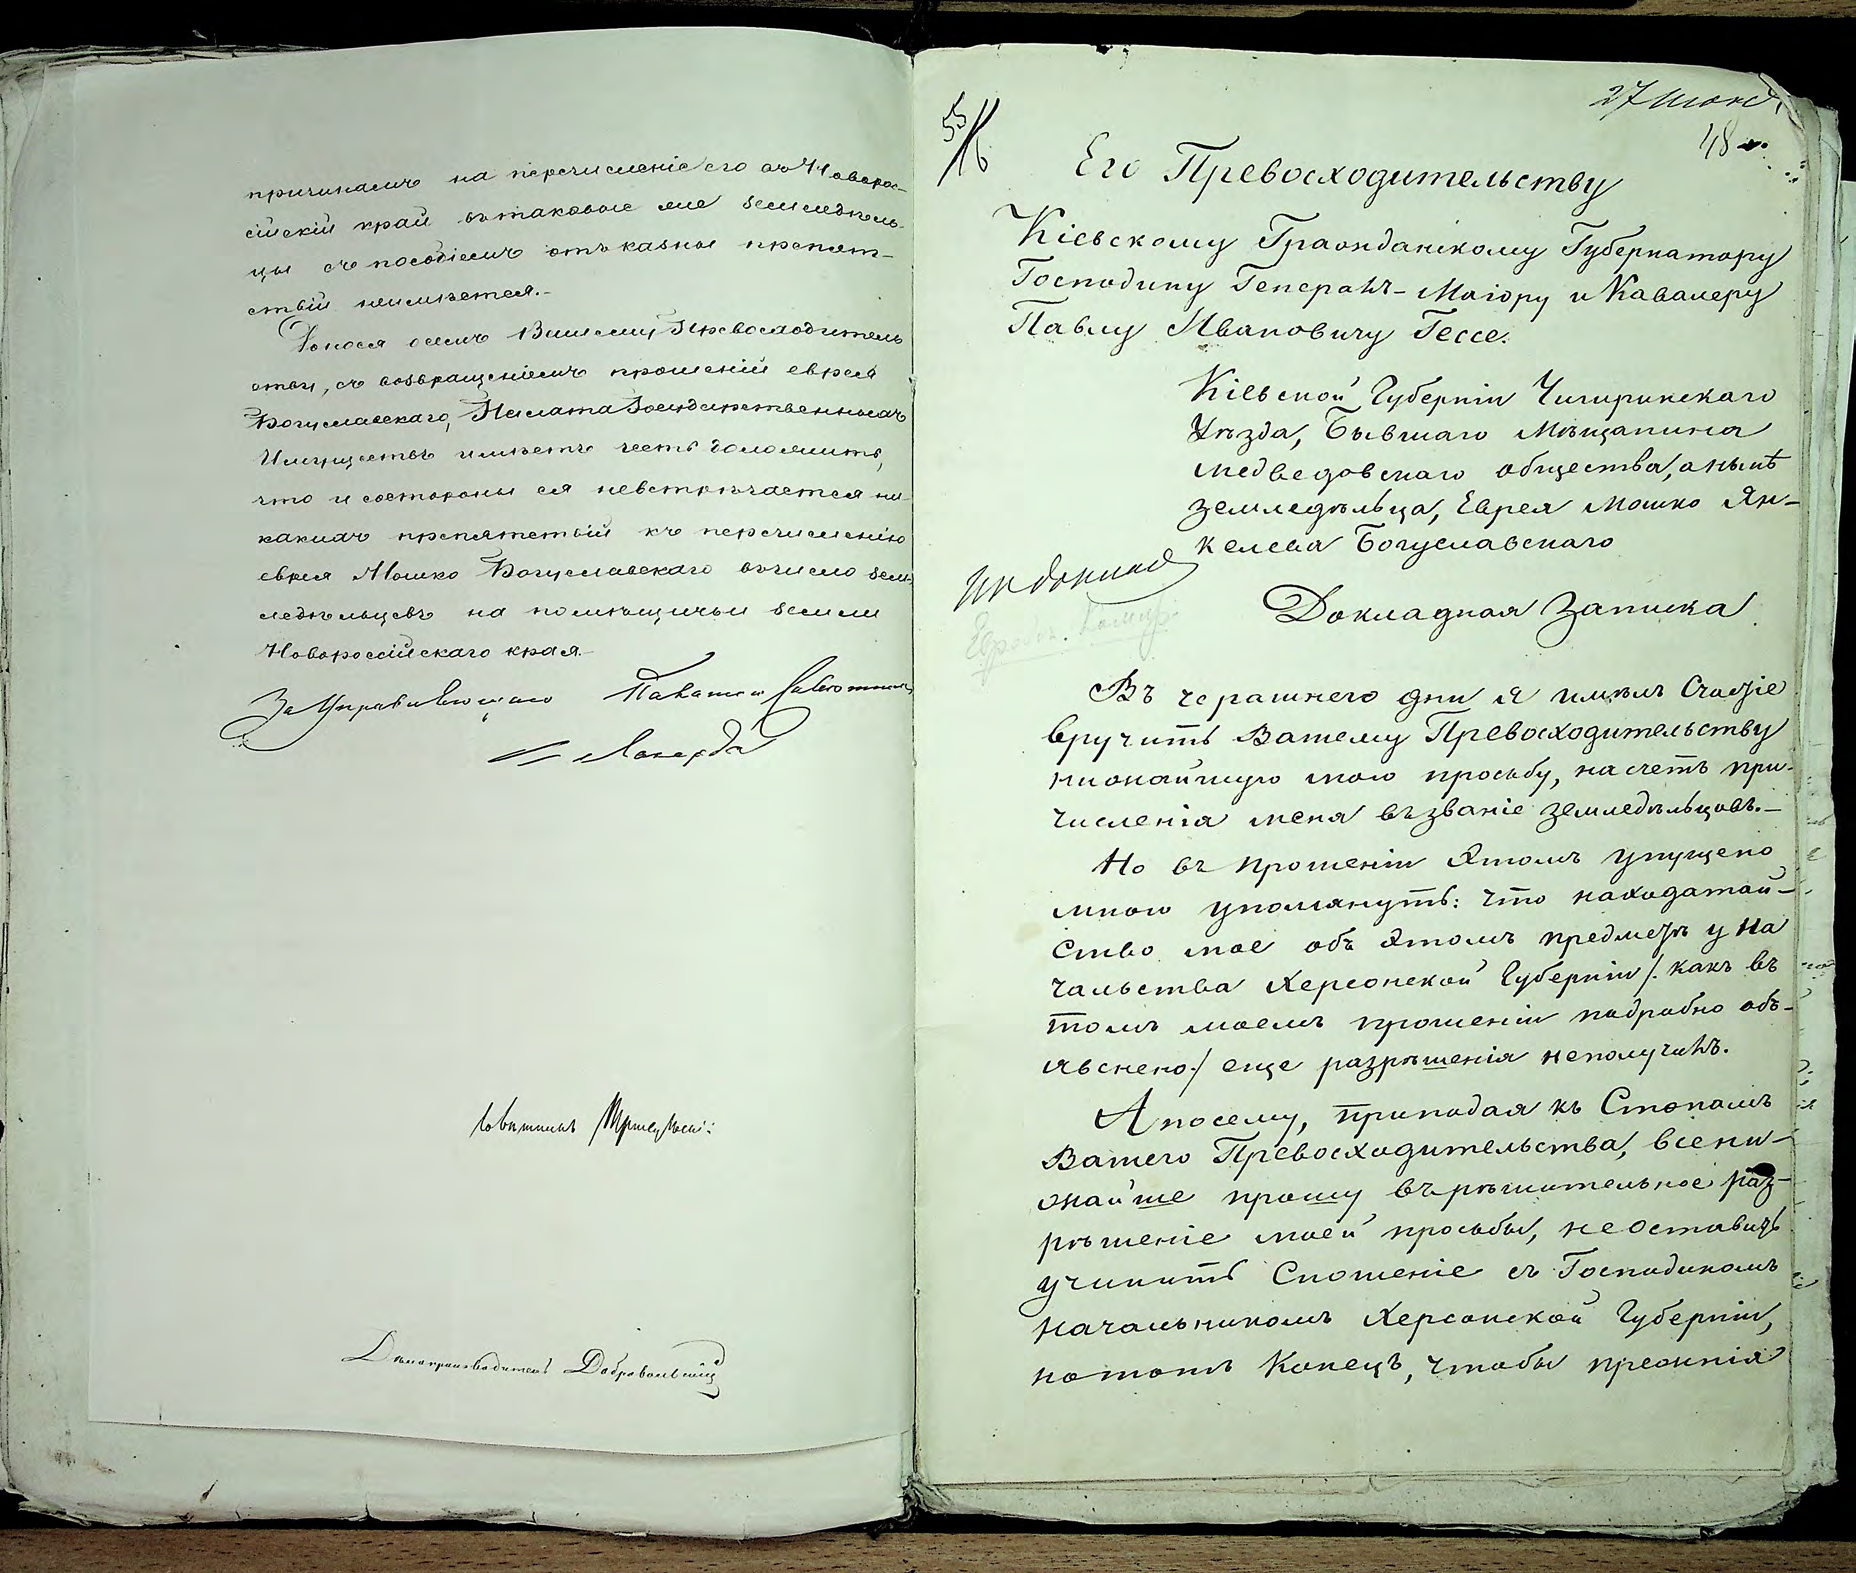 причинамъ на перечисленіе его въ Новорос-
сійскій край въ таковые же земледѣль-
цы съ пособіемъ отъ казны препят-
ствій неимѣется.-
Донося осемъ Вашему Превосходитель
ству, съ возвращеніемъ прошеній еврея
Богуславскаго, Палата Государственныхъ
Имуществъ имѣетъ честь доложить,
что и состороны ея невстрѣчается ни-
какихъ препятствій къ перечисленію
еврея Мошко Богуславскаго въчисло зем-
ледѣльцевъ на помѣщичьи земли
Новороссійскаго края.-
За Управляющаго Палатою
Совѣтникъ
Дѣлопроизводитель Добровольскій
27 Июня
48
55/16
Его Превосходительству
Кіевскому Гражданскому Губернатору
Господину Генералъ-Маіору и Кавалеру
Павлу Ивановичу Гессе.
Кіевской Губерніи Чигиринскаго
Уѣзда, Бывшаго Мѣщанина
медведовскаго общества, а нынѣ
земледѣльца, Еврея Мошко Ян-
келева Богуславскаго
Докладная Записка
Въ черашнего дни я имѣлъ Счастіе
вручить Вашему Превосходительству
нижайшую мою просьбу, насчетъ при-
численія меня въ званіе земледѣльцовъ.-
Но въ прошеніи Этомъ упущено
мною упомянуть: что находатай-
Ство мое объ Этомъ предметѣ у На
чальства Херсонской Губерніи /. какъ въ
томъ моемъ прошеніи подробно объ-
яснено./ еще разрѣшенія неполучилъ.
А посему, приподая къ Стопамъ
Вашего Превосходительства, всени-
жайше прошу въ рѣшительное раз-
рѣшеніе моей просьбы, неоставить
учинить Сношеніе съ Господиномъ
Начальникомъ Херсонской Губерніи,
натотъ Конецъ, чтобы прежнія